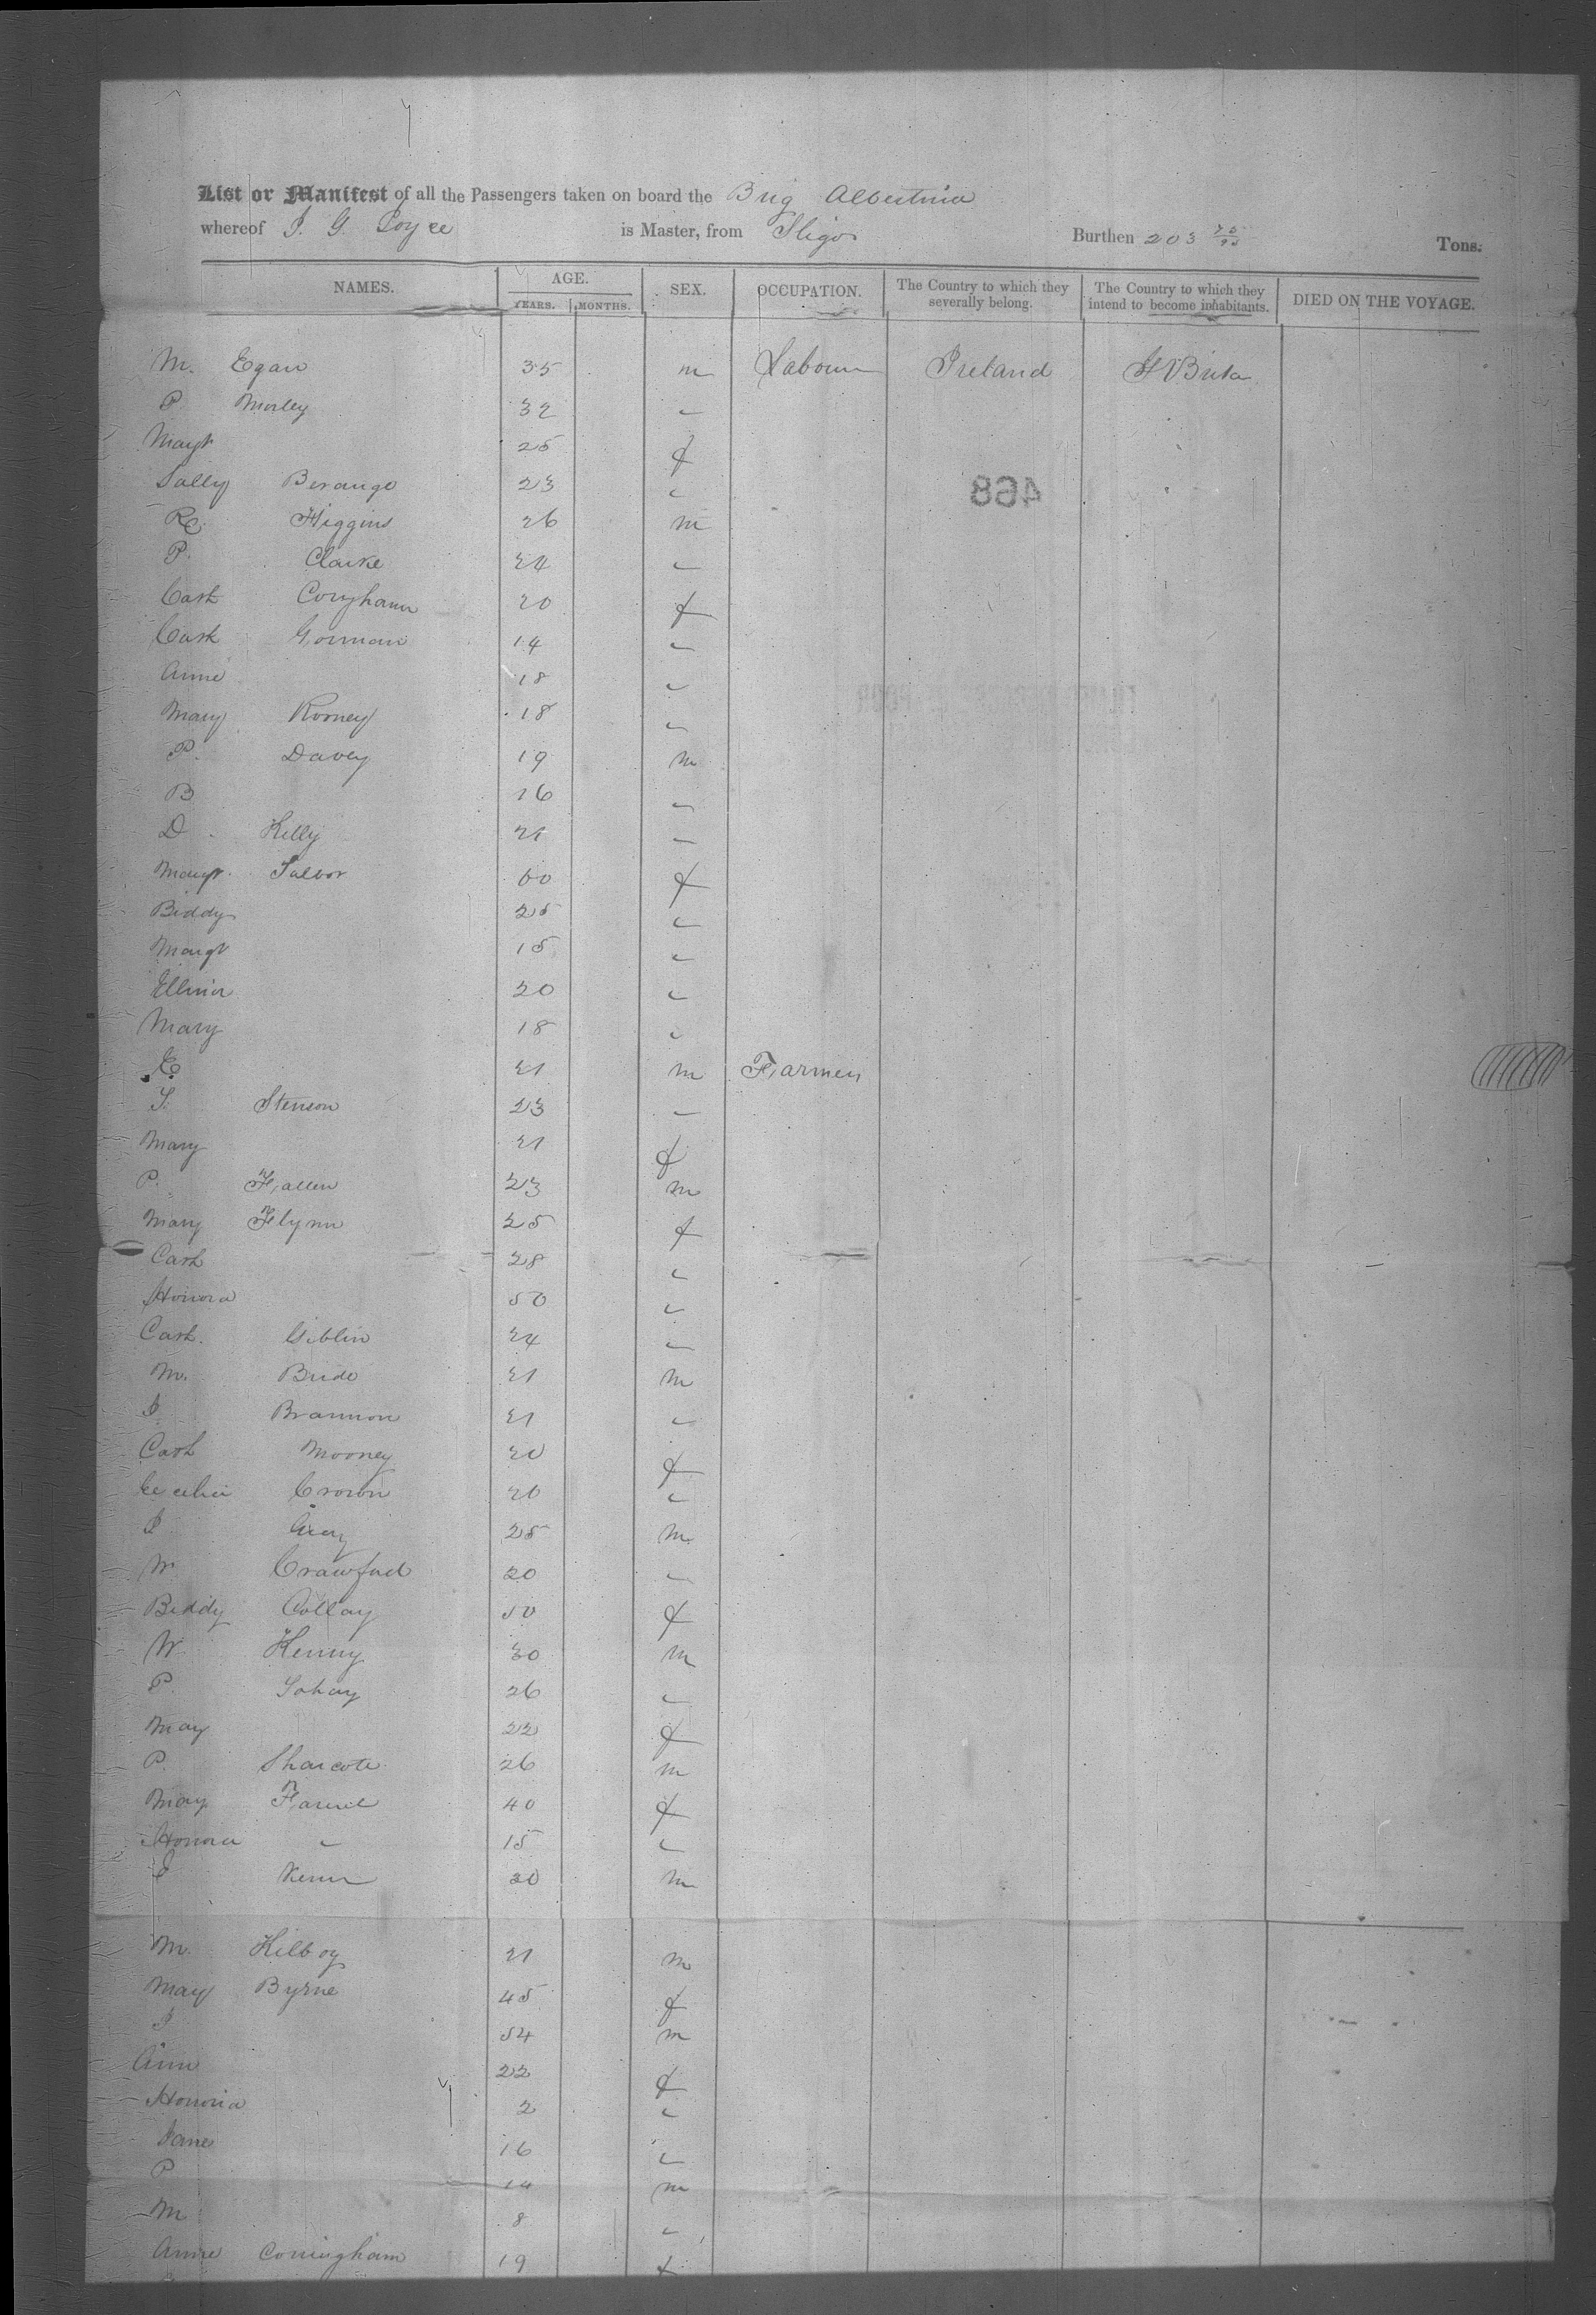 List or Manifest of all the Passengers taken on board the Brig Albertina
whereof J. G. Joyce is Master, from Sligo Burthen 203 75/95 Tons.
NAMES. AGE. SEX. OCCUPATION. The Country to which they severally belong. The Country to which they intend to become inhabitants. DIED ON THE VOYAGE.
YEARS. MONTHS.
M. Egan 35 m Labour Ireland
P Morley 32 "
Margt 25 f
Sally 23 "
468
Higgins 26 m
P. Clarke 24 "
Cath 20 f
Cath Gorman 14 "
Anne 18 "
Mary Rooney 18 "
P. Davey 19 m
B 16 "
D. Kelly 21 "
Margt. 60 f
Biddy 25 "
Margt 15 "
Ellinor 20 "
Mary 18 "
21 m Farmer
S. Stenson 23 "
Mary 21 f
P. Fallen 23 m
Mary Flynn 25 f
Cath 28 "
Honora 50 "
Cath. Giblin 24 "
M. Bride 21 m
J Brannon 21 "
Cath Mooney 20 f
Cecelia Crown 20 "
J 25 m
Crawford 20 "
Biddy 50 f
W Kenny 30 m
P. Gohary 26 "
May 22 f
P. 26 m
May 40 f
Honora " 15 "
J 20 m
M. Kilboy 21 m
May Byrne 45 f
J 54 m
Ann 22 f
Honoria 2 "
Jane 16 "
P 14 m
M 8 "
Anne Coningham 19 f